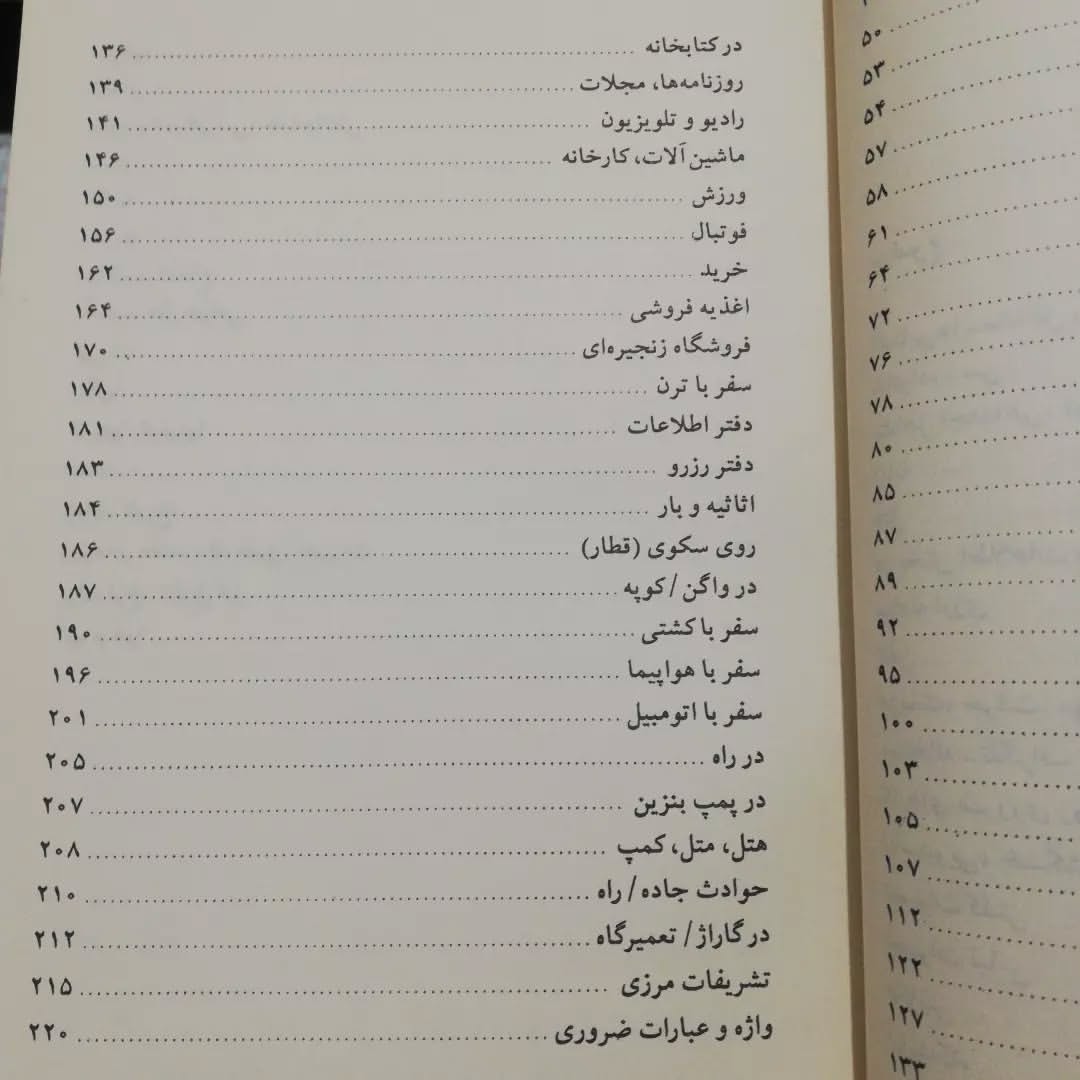 ۵۰
۵۳
۵۴
۵۷
۵۸
۶۱
۶۴
۷۲
۷۶
۷۸
۸۰
۸۵
۸۷
۸۹
۹۲
۹۵
۱۰۰
۱۰۳
۱۰۵
۱۰۷
۱۱۲
۱۲۲
۱۲۷
۱۳۳
در کتابخانه ........ ۱۳۶
روزنامه‌ها، مجلات ........ ۱۳۹
رادیو و تلویزیون ........ ۱۴۱
ماشین آلات، کارخانه ........ ۱۴۶
ورزش ........ ۱۵۰
فوتبال ........ ۱۵۶
خرید ........ ۱۶۲
اغذیه فروشی ........ ۱۶۴
فروشگاه زنجیره‌ای ........ ۱۷۰
سفر با ترن ........ ۱۷۸
دفتر اطلاعات ........ ۱۸۱
دفتر رزرو ........ ۱۸۳
اثاثیه و بار ........ ۱۸۴
روی سکوی (قطار) ........ ۱۸۶
در واگن / کوپه ........ ۱۸۷
سفر با کشتی ........ ۱۹۰
سفر با هواپیما ........ ۱۹۶
سفر با اتومبیل ........ ۲۰۱
در راه ........ ۲۰۵
در پمپ بنزین ........ ۲۰۷
هتل، متل، کمپ ........ ۲۰۸
حوادث جاده / راه ........ ۲۱۰
در گاراژ / تعمیرگاه ........ ۲۱۲
تشریفات مرزی ........ ۲۱۵
واژه و عبارات ضروری ........ ۲۲۰